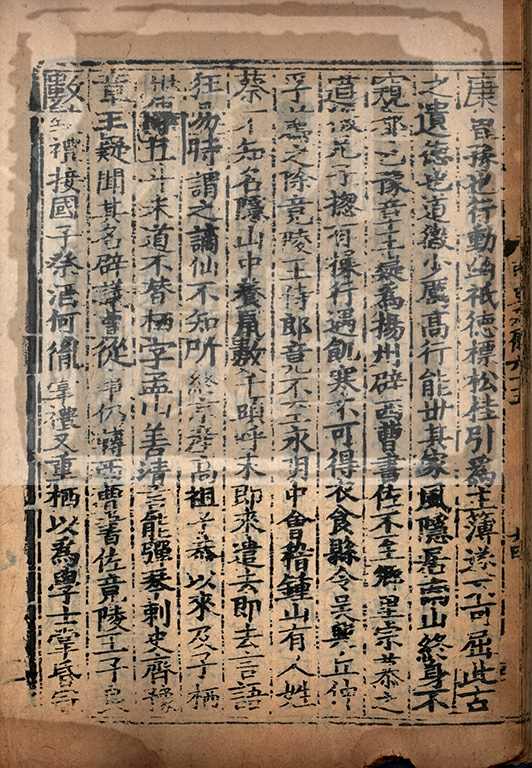 康冒豫也行動幽祇德標松桂引為主薄遂不可屈此古
之遺德也道徽少厲高行能世其家風隱居南山終身不
窺都邑豫章王嶷為揚州辟西曹書佐不至鄉里宗慕之
道徽兄子揔有操行遇飢寒不可得衣食縣令吳興丘仲
孚薦之除竟陵王侍郎竟不至永明中會稽鍾山有人姓
蔡不知名隱山中養鼠數千頭呼來即來遣去即去言語
狂易時謂之謫仙不知所終京產高祖子恭以來及子栖
世傳五斗米道不替栖字孟山善清言能彈琴刺史齊豫
章王嶷聞其名辟議曹從事仍轉西曹書佐竟陵王子良
數致禮接國子祭酒何胤掌禮又重栖以為學士掌昏冠